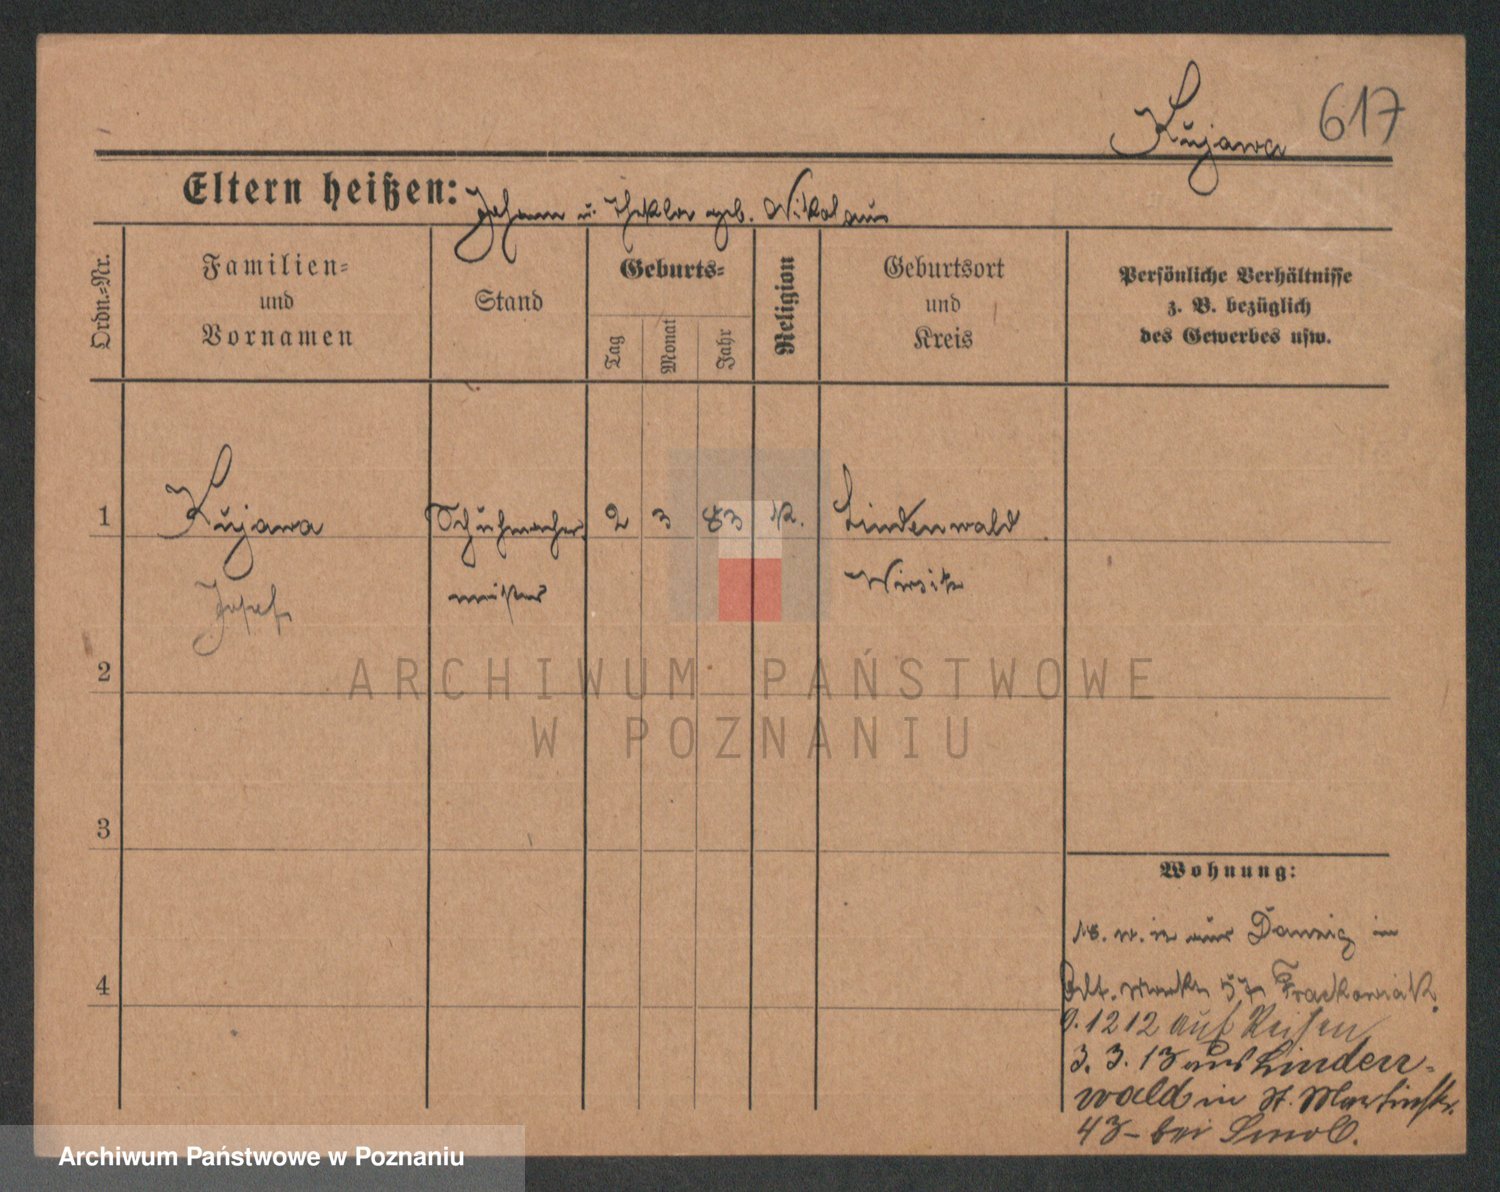 Kujawa 617
Eltern heißen: Johann u. Thekla geb. Nikolaus
Ordn.-Nr.
Familien-
und
Vornamen
Stand
Geburts-
Tag
Monat
Jahr
Religion
Geburtsort
und
Kreis
Persönliche Verhältnisse
z. B. bezüglich
des Gewerbes usw.
1 Kujawa Schuhmacher 2 3 83 k. Lindenwald
Josef meister Wirsitz
2
3
4
Wohnung:
aus Danzig in
Alt. Markt 57 Frackowiak.
9.12 12 auf Reisen
3. 3. 13 aus Linden-
wald in St. Martinstr.
43 - bei Smol.
ARCHIWUM PAŃSTWOWE
W POZNANIU
Archiwum Państwowe w Poznaniu